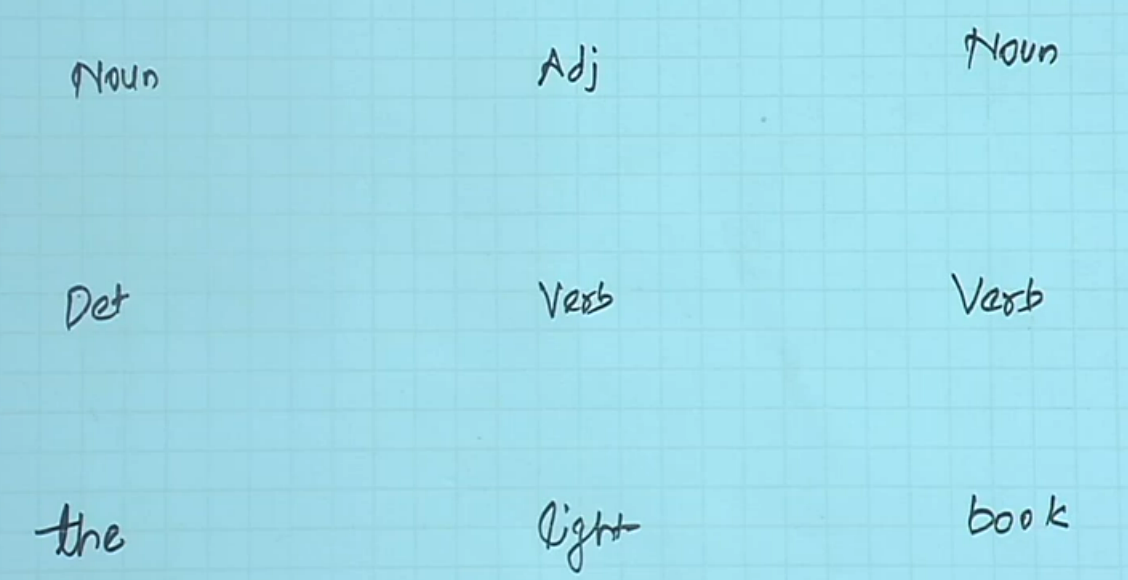 Noun Adj Noun
Det Verb Verb
the light book